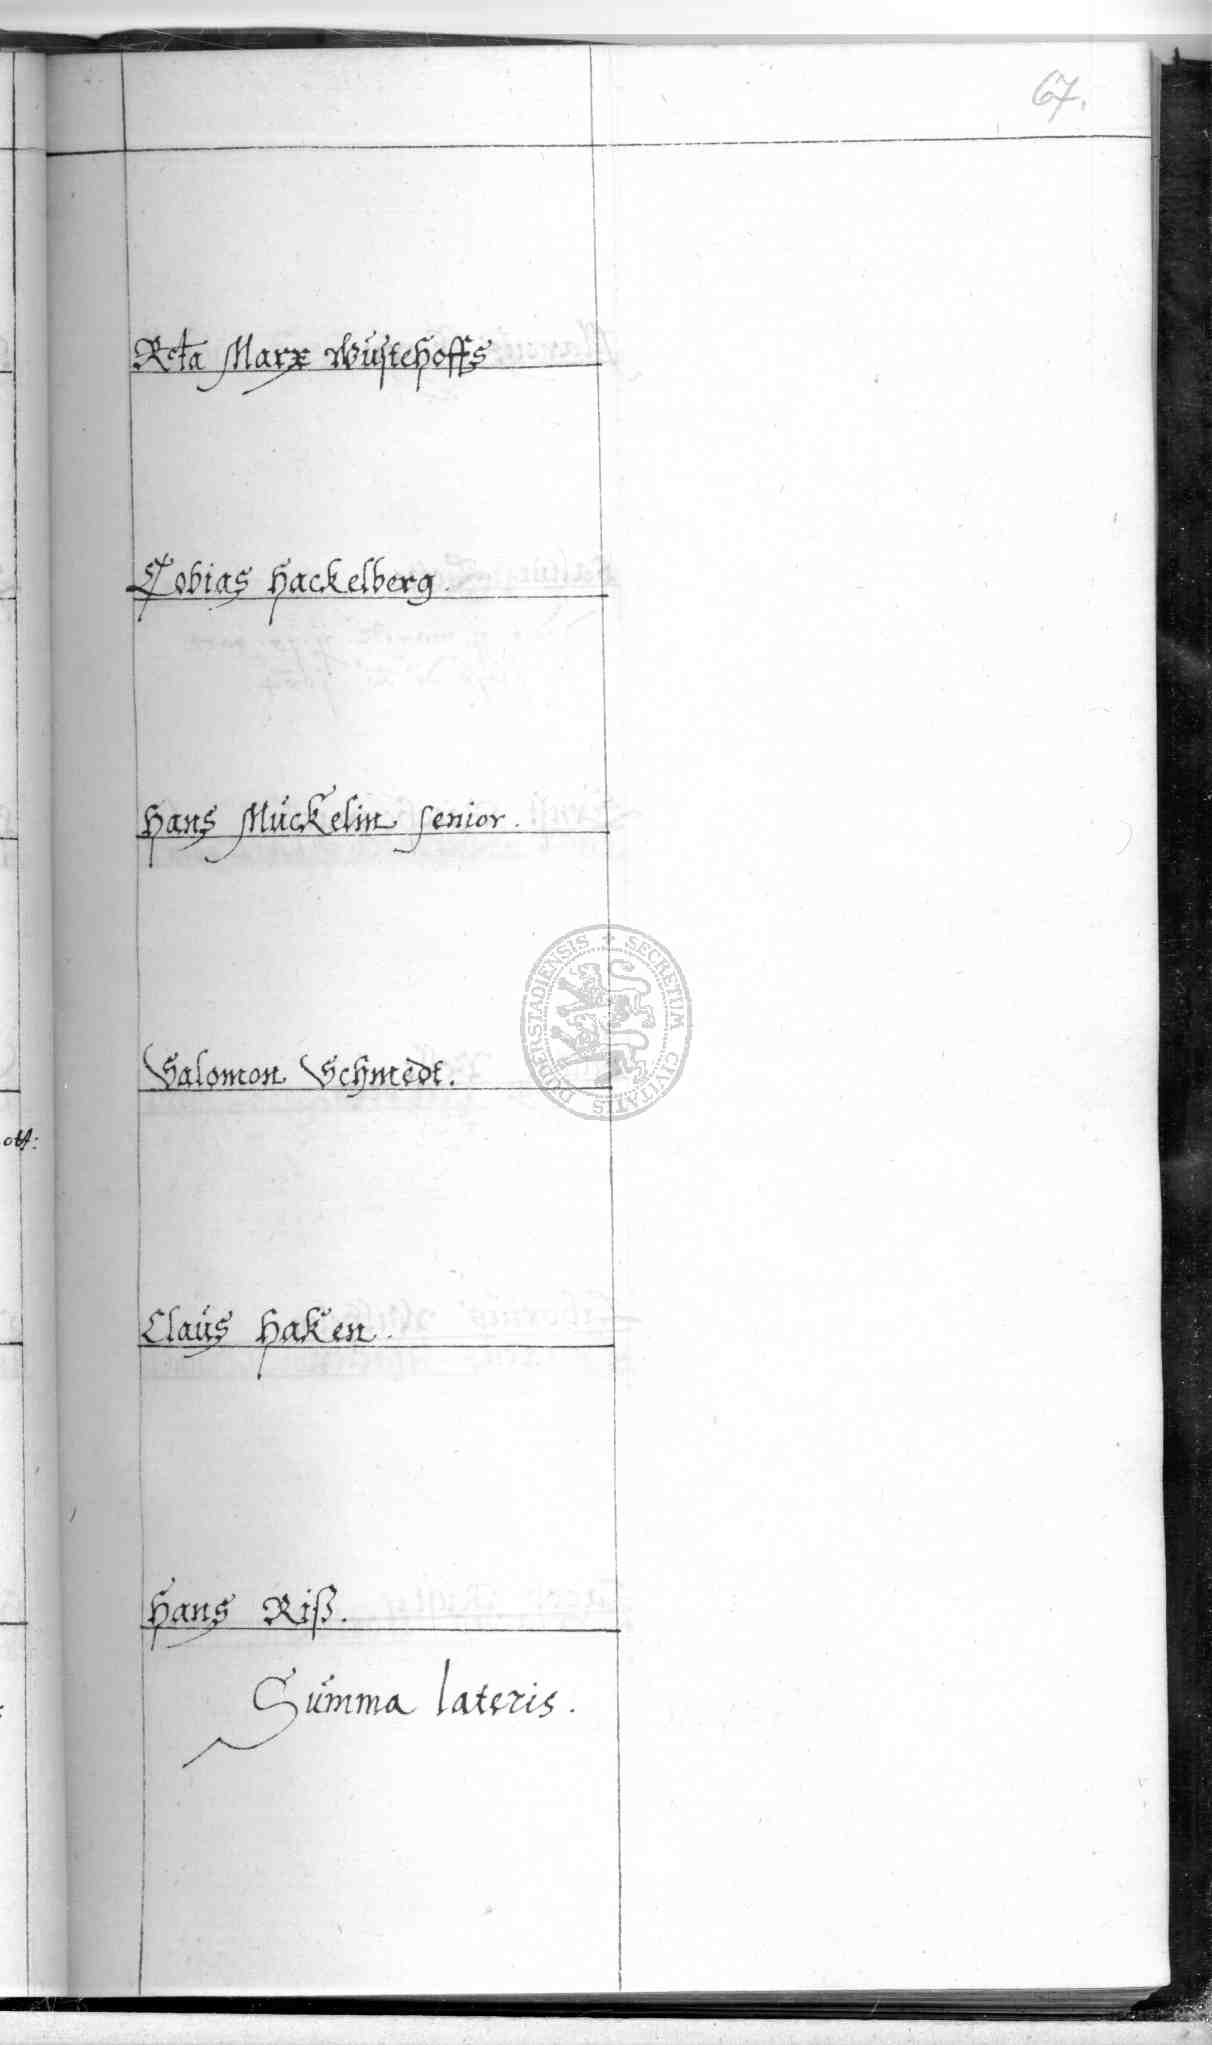 67.
Rcta Marx Wüstehoffs
Tobias Hackelberg.
Hans Mückelin senior.
Salomon Schmedt.
ott:
Claus Haken.
Hans Riß.
Summa lateris.
SECRETUM CIVITATIS DUDERSTADIENSIS